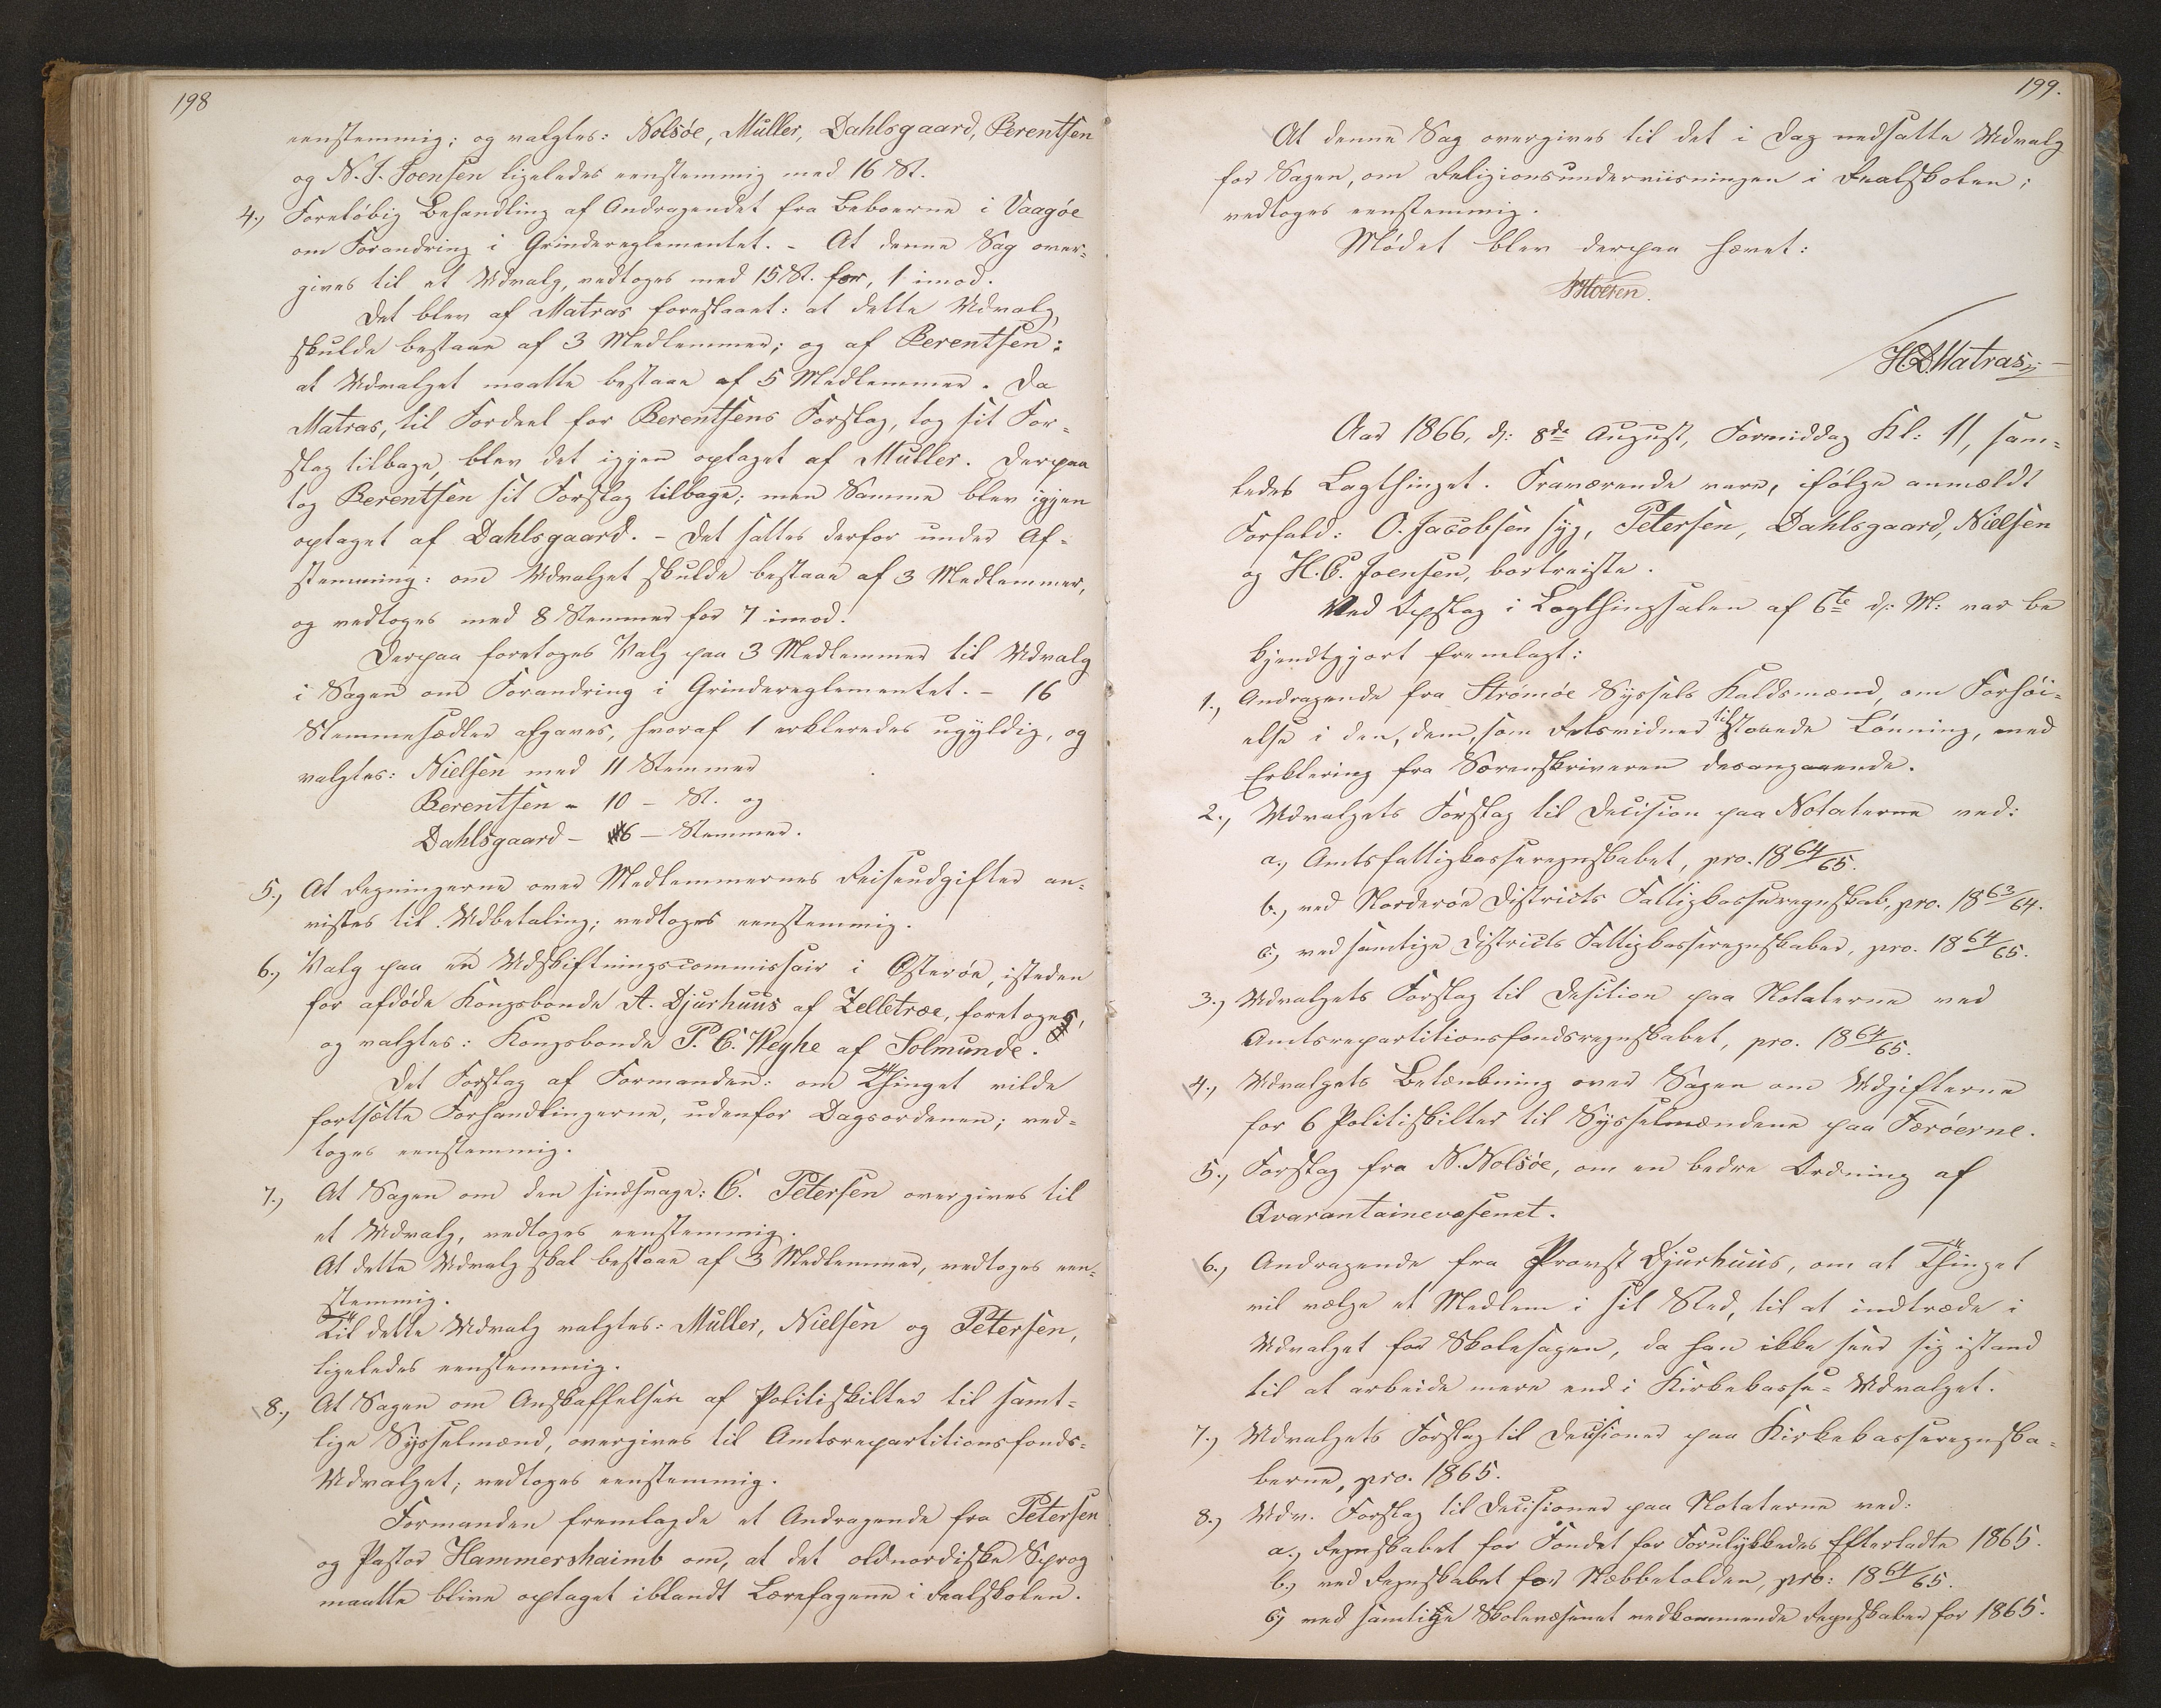 198
eenstemmig; og valgtes: Nolsöe, Müller, Dahlsgaard, Berentsen
og N. J. Joensen ligeledes eenstemmig med 16 St.
4., Foreløbig Behandling af Andragendet fra Beboerne i Vaagöe
om Forandring i Grindereglementet. - At denne Sag over-
gives til et Udvalg, vedtoges med 15 St. for, 1 imod.
Det blev af Matras foreslaaet: at dette Udvalg,
skulde bestaae af 3 Medlemmer; og af Berentsen:
at Udvalget maatte bestaae af 5 Medlemmer. Da
Matras, til Fordeel for Berentsens Forslag, tog sit For-
slag tilbage, blev det igjen optaget af Müller. Derpaa
tog Berentsen sit Forslag tilbage; men Samme blev igjen
optaget af Dahlsgaard. - Det sattes derfor under Af-
stemning: om Udvalget skulde bestaae af 3 Medlemmer,
og vedtoges med 8 Stemmer for 7 imod.
Derpaa foretoges Valg paa 3 Medlemmer til Udvalg
i Sagen om Forandring i Grindereglementet. - 16
Stemmesedler afgaves, hvoraf 1 erkleredes ugyldig, og
valgtes: Nielsen med 11 Stemmer
Berentsen - 10 - St. og
Dahlsgaard - 6 - Stemmer.
5., At Regningerne over Medlemmernes Reiseudgifter an-
vistes til Udbetaling; vedtoges eenstemmig.
6., Valg paa en Udskiftningscommissair i Østeröe, isteden
for afdøde Kongsbonde A. Djurhuus af Zelletræe, foretoges,
og valgtes: Kongsbonde P. C. Weyhe af Solmunde.
Det Forslag af Formanden: om Thinget vilde
fortsætte Forhandlingerne, udenfor Dagsordenen; ved-
toges eenstemmig.
7., At Sagen om den sindsvage: C. Petersen overgives til
et Udvalg, vedtoges eenstemmig.
At dette Udvalg skal bestaae af 3 Medlemmer, vedtoges een-
stemmig.
Til dette Udvalg valgtes: Müller, Nielsen og Petersen,
ligeledes eenstemmig.
8., At Sagen om Anskaffelsen af Politiskilter til samt-
lige Sysselmænd, overgives til Amtsrepartitionsfonds-
Udvalget; vedtoges eenstemmig.
Formanden fremlagde et Andragende fra Petersen
og Pastor Hammershaimb om, at det oldnordiske Sprog
maatte blive optaget iblandt Lærefagene i Realskolen.
199.
At denne Sag overgives til det i Dag nedsatte Udvalg
for Sagen, om Religionsunderviisningen i Realskolen;
vedtoges eenstemmig.
Mødet blev derpaa hævet:
HDMatras
Aar 1866, d: 8de August, Formiddag Kl: 11, sam-
ledes Lagthinget. Fraværende vare, ifölge anmeldt
Forfald: O. Jacobsen syg, Petersen, Dahlsgaard, Nielsen
og H. C. Joensen, bortreiste.
Ved Opslag i Lagthingssalen af 6te d: M: var be
kjendtgjort fremlagt:
1., Andragende fra Strømöe Syssels Kaldsmænd, om Forhöi-
else i den, dem, som Retsvidner tilstaaede Lönning, med
Erklering fra Sorenskriveren desangaaende.
2., Udvalgets Forslag til Decision paa Notaterne ved:
a., Amtsfattigkasseregnskabet, pro. 1864/65.
b., ved Norderøe Districts Fattigkasseregnskab, pro. 1863/64.
c., ved samtlige Districts Fattigkasseregnskaber, pro. 1864/65.
3., Udvalgets Forslag til Desition paa Notaterne ved
Amtsrepartitionsfondsregnskabet, pro. 1864/65.
4., Udvalgets Betænkning over Sagen om Udgifterne
for 6 Politiskilter til Sysselmændene paa Færöerne.
5., Forslag fra N. Nolsöe, om en bedre Ordning af
Qvarantainevæsenet.
6., Andragende fra Provst Djurhuus, om at Thinget
vil vælge et Medlem i sit Sted, til at indtræde i
Udvalget for Skolesagen, da han ikke seer sig istand
til at arbeide mere end i Kirkekasse-Udvalget.
7., Udvalgets Forslag til Decisioner paa Kirkekasseregnska-
berne, pro. 1865.
8., Udv. Forslag til Decisioner paa Notaterne ved:
a., Regnskabet for Fondet for Forulykkedes Efterladte 1865.
b., ved Regnskabet for Næbbetolden, pro: 1864/65.
c, ved samtlige Skolevæsenet vedkommende Regnskaber for 1865.